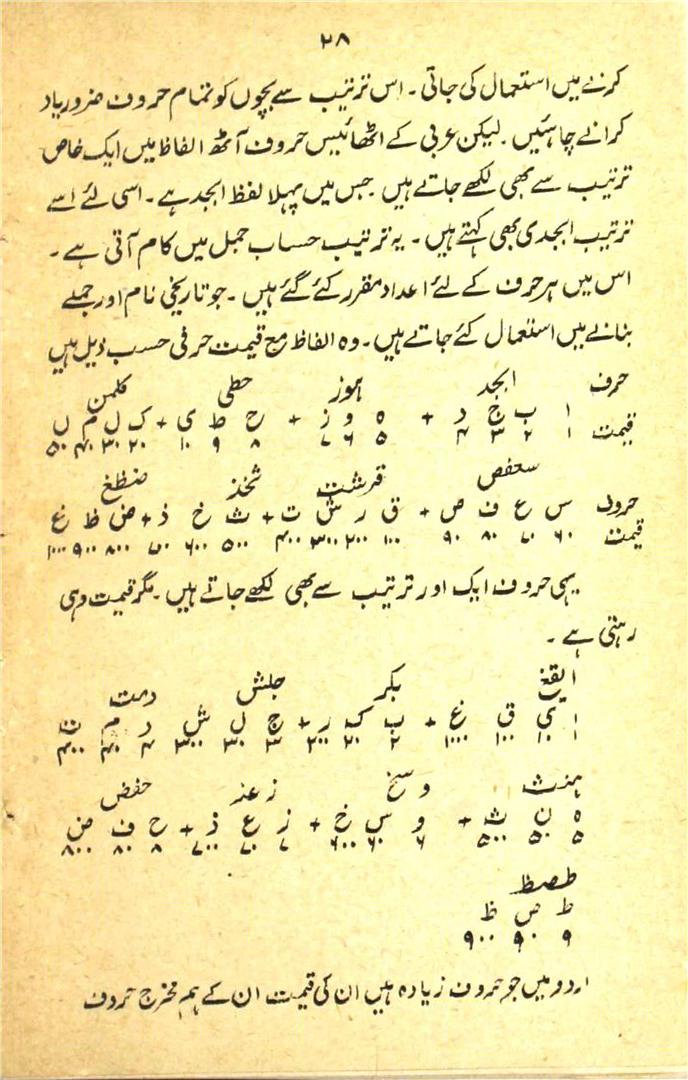 ۲۸
کرنے میں استعمال کی جاتی۔ اس ترتیب سے بچوں کو تمام حروف ضرور یاد
کرانے چاہئیں۔ لیکن عربی کے اٹھائیس حروف آٹھ الفاظ میں ایک خاص
ترتیب سے بھی لکھے جاتے ہیں جس میں پہلا لفظ ابجد ہے۔ اسی لئے اسے
ترتیب ابجدی بھی کہتے ہیں۔ یہ ترتیب حساب جمل میں کام آتی ہے۔
اس میں ہر حرف کے لئے اعداد مقرر کئے گئے ہیں۔ جو تاریخی نام اور جملے
بنانے میں استعمال کئے جاتے ہیں۔ وہ الفاظ مع قیمت حرفی حسب ذیل ہیں
حرف ابجد ہوز حطی کلمن
ا ب ج د + ہ و ز + ح ط ی + ک ل م ن
قیمت ۱ ۲ ۳ ۴ ۵ ۶ ۷ ۸ ۹ ۱۰ ۲۰ ۳۰ ۴۰ ۵۰
سعفص قرشت ثخذ ضظغ
حروف س ع ف ص + ق ر ش ت + ث خ ذ + ض ظ غ
قیمت ۶۰ ۷۰ ۸۰ ۹۰ ۱۰۰ ۲۰۰ ۳۰۰ ۴۰۰ ۵۰۰ ۶۰۰ ۷۰۰ ۸۰۰ ۹۰۰ ۱۰۰۰
یہی حروف ایک اور ترتیب سے بھی لکھے جاتے ہیں۔ مگر قیمت وہی
رہتی ہے۔
ایقغ بکر جلش دمت
ا ی ق غ + ب ک ر + ج ل ش د م ت
۱ ۱۰ ۱۰۰ ۱۰۰۰ ۲ ۲۰ ۲۰۰ ۳ ۳۰ ۳۰۰ ۴ ۴۰ ۴۰۰
ہنث وسخ زعذ حفض
ہ ن ث + و س خ + ز ع ذ + ح ف ض
۵ ۵۰ ۵۰۰ ۶ ۶۰ ۶۰۰ ۷ ۷۰ ۷۰۰ ۸ ۸۰ ۸۰۰
طصظ
ط ص ظ
۹ ۹۰ ۹۰۰
اردو میں جو حروف زیادہ ہیں ان کی قیمت ان کے ہم مخرج حروف